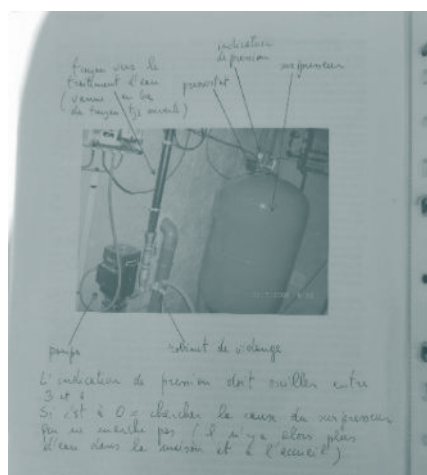 tuyau vers le
traitement d'eau
(vanne en bas
de tuyau tjs ouverte)
indication
de pression
pressostat
surpresseur
pompe
robinet de vidange
L'indication de pression doit osciller entre
3 et 4
Si c'est à 0 = chercher la cause du surpresseur
qui ne marche pas (il n'y a alors plus
d'eau dans la maison et à l'accueil)